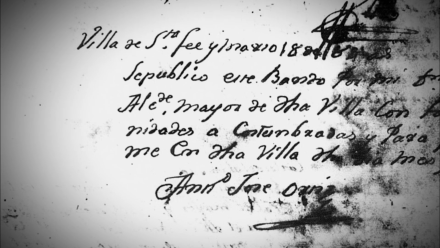 Villa de S.ta fee y Marzo 18
Se publico este Bando Por mi D.
Alc.de mayor de dha Villa Con
nidades a Costunbradas y Para
me En dha Villa dho dia mes
Ant.o Jose Ortiz